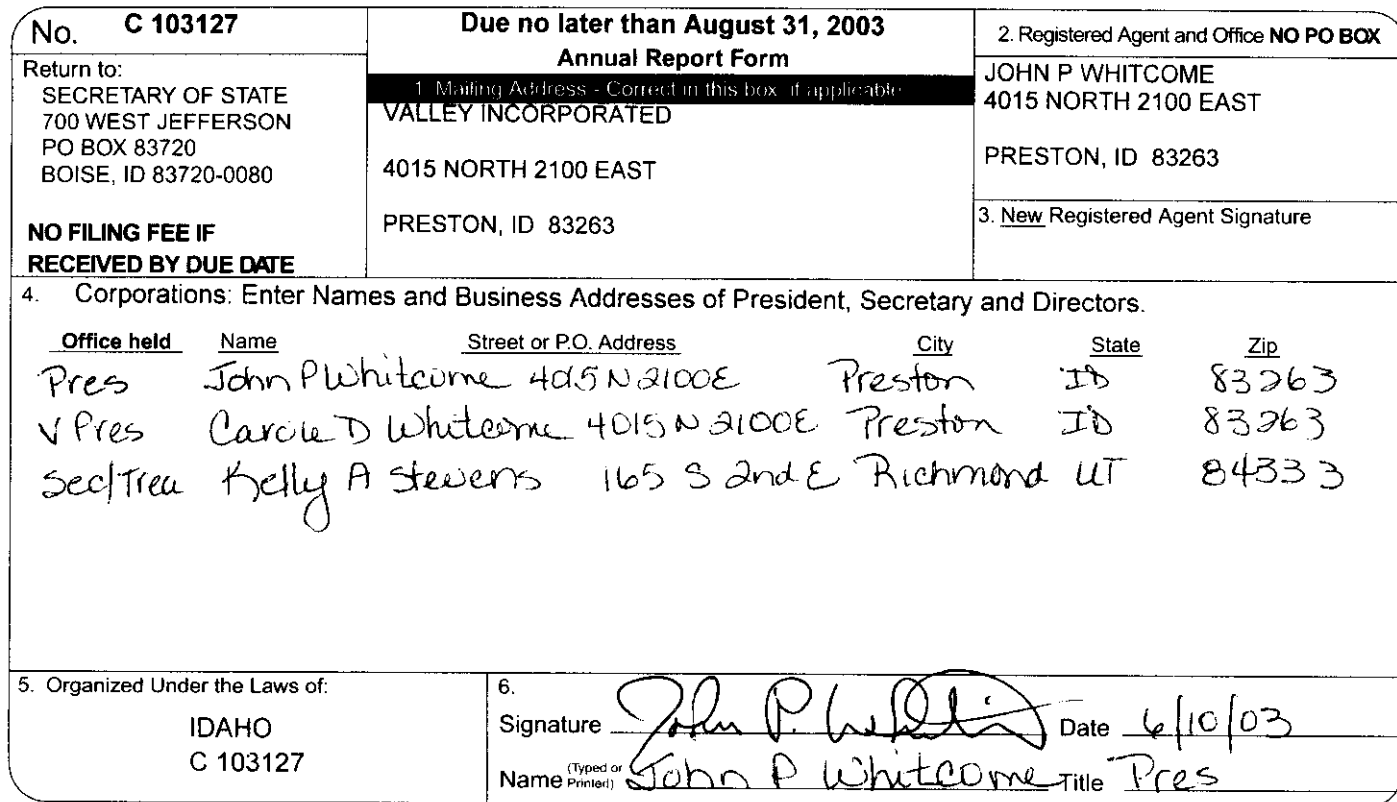 No. C 103127
Return to:
SECRETARY OF STATE
700 WEST JEFFERSON
PO BOX 83720
BOISE, ID 83720-0080
NO FILING FEE IF
RECEIVED BY DUE DATE
Due no later than August 31, 2003
Annual Report Form
1. Mailing Address - Correct in this box, if applicable
VALLEY INCORPORATED
4015 NORTH 2100 EAST
PRESTON, ID 83263
2. Registered Agent and Office NO PO BOX
JOHN P WHITCOME
4015 NORTH 2100 EAST
PRESTON, ID 83263
3. New Registered Agent Signature
4. Corporations: Enter Names and Business Addresses of President, Secretary and Directors.
Office held Name Street or P.O. Address City State Zip
Pres John P Whitcome 4015 N 2100E Preston ID 83263
V Pres Carole D Whitcome 4015 N 2100E Preston ID 83263
Sec/Trea Kelly A Stevens 165 S 2nd E Richmond UT 84333
5. Organized Under the Laws of:
IDAHO
C 103127
6.
Signature John P. Date 6/10/03
Name (Typed or Printed) John P Whitcome Title Pres